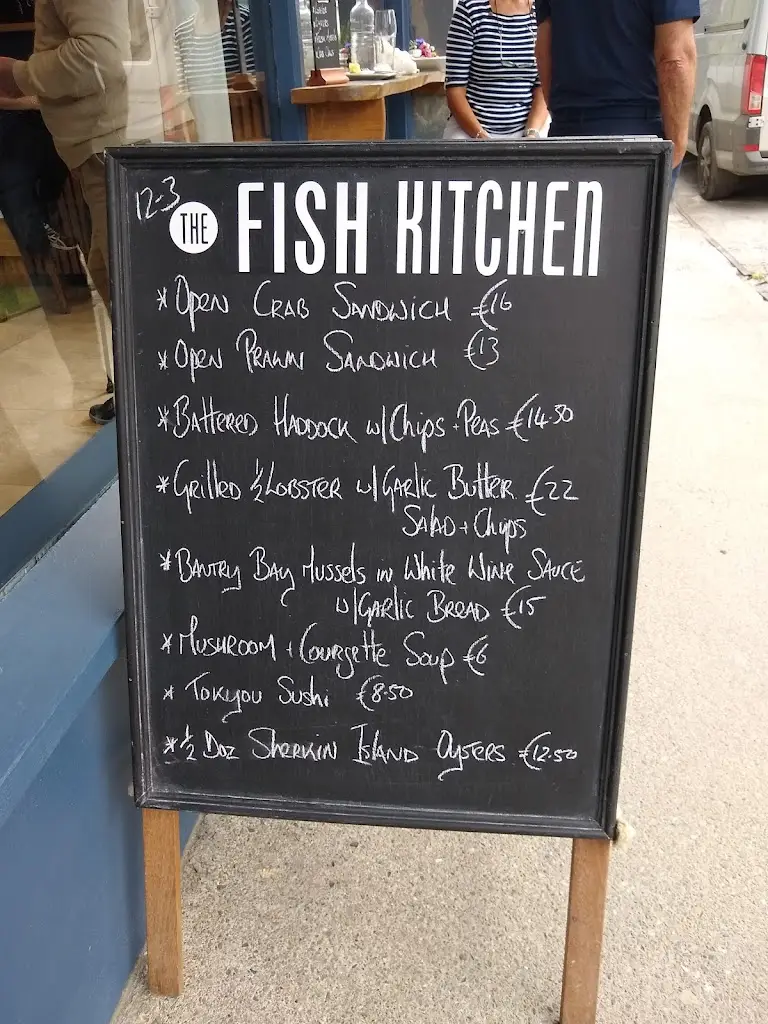 12-3
THE FISH KITCHEN
* OPEN CRAB SANDWICH €16
* OPEN PRAWN SANDWICH €13
* BATTERED HADDOCK w/ CHIPS + PEAS €14.50
* GRILLED ½ LOBSTER w/ GARLIC BUTTER €22
SALAD + CHIPS
* BANTRY BAY MUSSELS IN WHITE WINE SAUCE
w/ GARLIC BREAD €15
* MUSHROOM + COURGETTE SOUP €6
* TOKYOU SUSHI €8.50
* ½ DOZ SHERKIN ISLAND OYSTERS €12.50